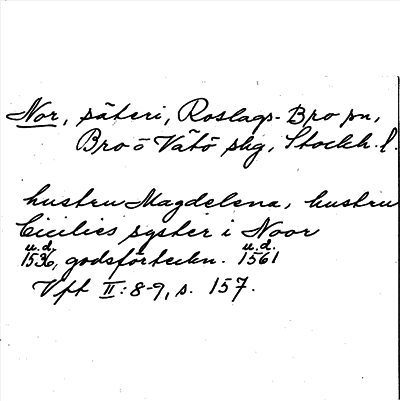 Nor, säteri, Roslags-Bro sn,
Bro o Vätö skg, Stockh. l.
hustru Magdelena, hustru
Cicilies syster i Noor
u.d. u.d.
1536, godsförteckn. 1561
Vft II:8-9, s. 157.